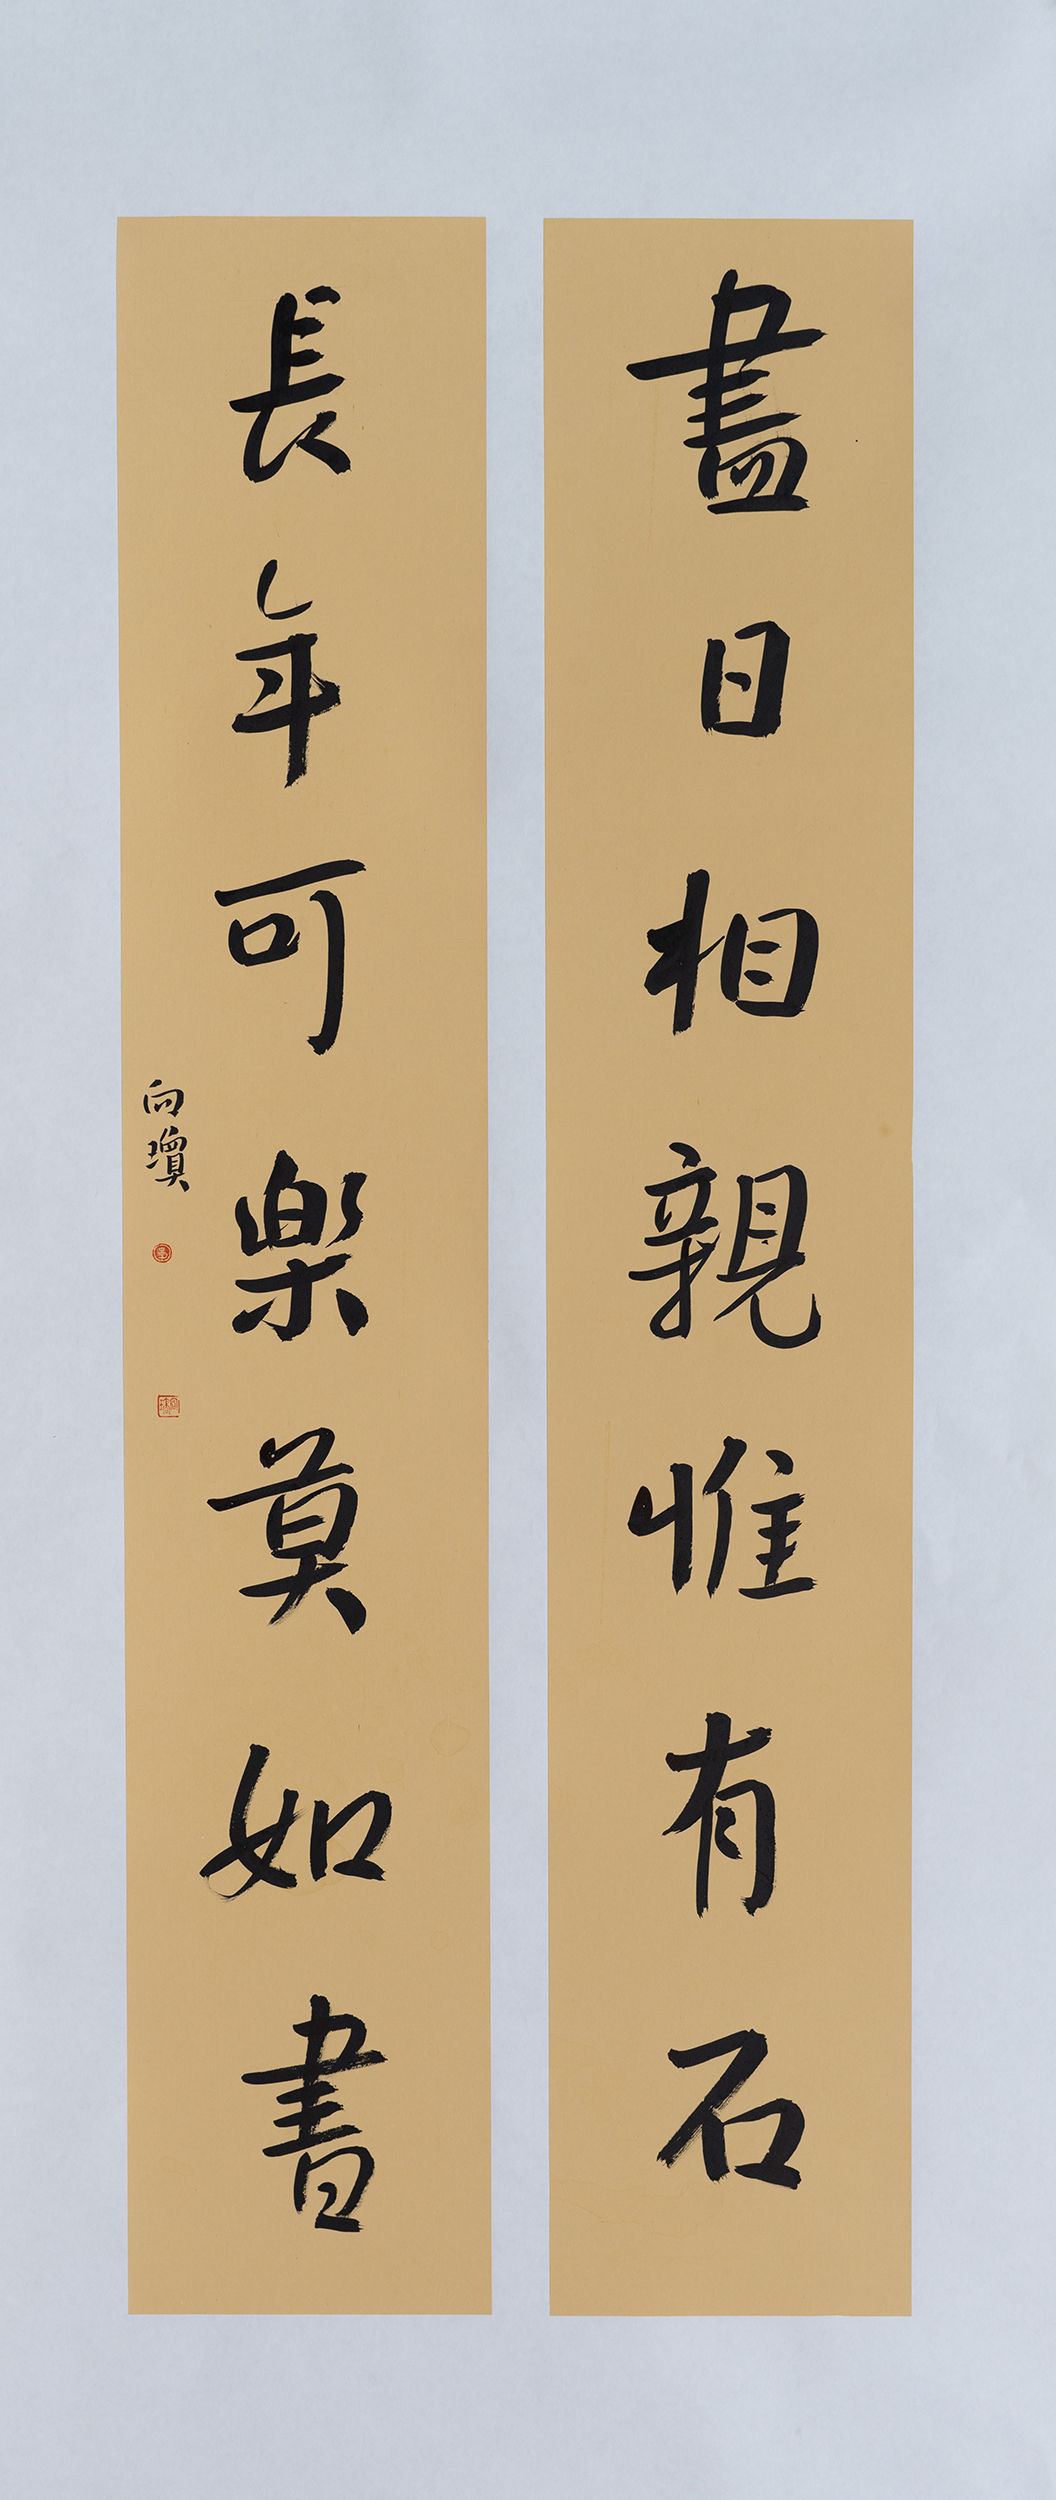 盡日相親惟有石
長年可樂莫如書
向瓊